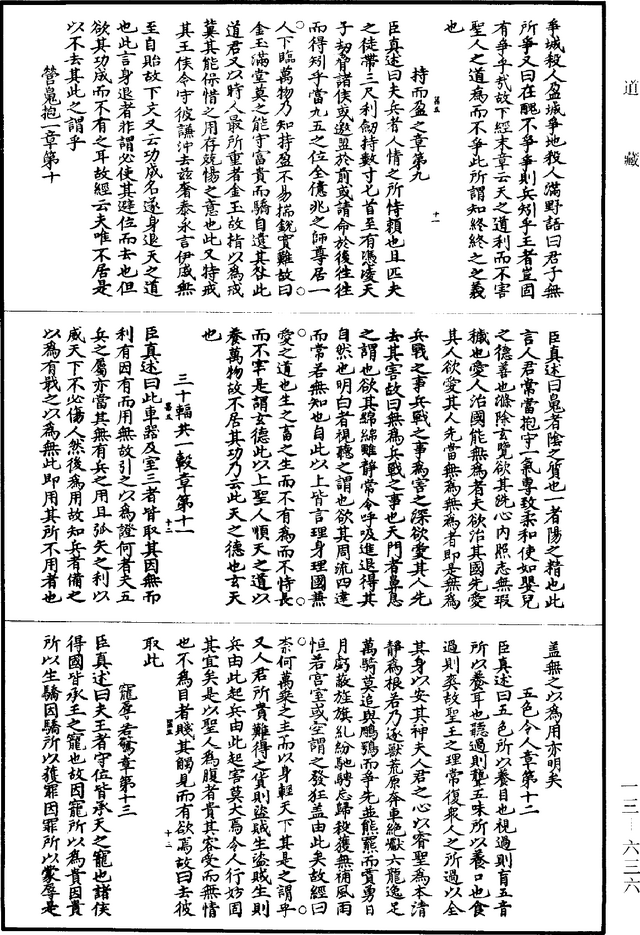 道藏
爭城殺人盈城爭地殺人滿野語曰君子無
所爭又曰在醜不爭爭則兵矧乎王者豈固
有爭乎哉故下經末章云天之道利而不害
聖人之道為而不爭此所謂知終終之之義
也
持而盈之章第九
臣真述曰夫兵者人情之所恃賴也且匹夫
之徒帶三尺利劒持數寸匕首至有憑凌天
子劫脅諸侯或邀盟於前或請命於後往往
而得矧乎當九五之位全億兆之師尊居一
人下臨萬物乃知持盈不易揣銳實難故曰
金玉滿堂莫之能守富貴而驕自遺其咎此
道君又以時人最所重者金玉故指以為戒
兾其能保惜之用存兢惕之意也此又特戒
其王侯令守彼謙沖去兹奢泰永言伊戚無
至自貽故下文又云功成名遂身退天之道
也此言身退者非謂必使其避位而去也但
欲其功成而不有之耳故經云夫唯不居是
以不去其此之謂乎
營䰟抱一章第十
臣真述曰䰟者陰之質也一者陽之精也此
言人君常當抱守一氣專致柔和使如嬰兒
之德善也滌除玄覽欲其洗心內照志無瑕
穢也愛人治國能無為者夫欲治其國先愛
其人欲愛其人先當無為無為者即是無為
兵戰之事兵戰之事為害之深欲愛其人先
去其害故曰無為兵戰之事也天門者鼻息
之謂也欲其綿綿雖靜常令呼吸進退得其
自然也明白者視聽之謂也欲其周流四達
而常若無知也自此以上皆言理身理國兼
愛之道也生之畜之生而不有為而不恃長
而不宰是謂玄德此以上聖人順天之道以
養萬物故不居其功乃云此天之德也玄天
也
三十輻共一轂章第十一
臣真述曰此車器及室三者皆取其因無而
利有因有而用無故引之以為證何者夫五
兵之屬亦當其無有兵之用且弧矢之利以
威天下不必傷人然後為用故知兵者備之
以為有戢之以為無此即用其所不用者也
盖無之以為用亦明矣
五色令人章第十二
臣真述曰五色所以養目也視過則盲五音
所以養耳也聽過則聾五味所以養口也食
過則爽故聖王之理常復衆人之所過以全
其身以安其神夫人君之心以睿聖為本清
靜為根若乃逐獸荒原奔車絶巘六龍逸足
萬騎莫追與鵰鶚而爭先並熊羆而賈勇日
月虧敝旌旗亂紛馳騁忘歸殺獲無補風雨
恒若宮室或空謂之發狂盖由此矣故經曰
柰何萬乘之主而以身輕天下其是之謂乎
又人君所貴難得之貨則盜賊生盜賊生則
兵由此起兵由此起害莫大焉令人行妨固
其宜矣是以聖人為腹者貴其容受而無情
也不為目者賤其觸見而有欲焉故曰去彼
取此
寵辱若驚章第十三
臣真述曰夫王者守位皆承天之寵也諸侯
得國皆承王之寵也故因寵所以為貴因貴
所以生驕因驕所以獲罪因罪所以蒙辱是
一三—六三六